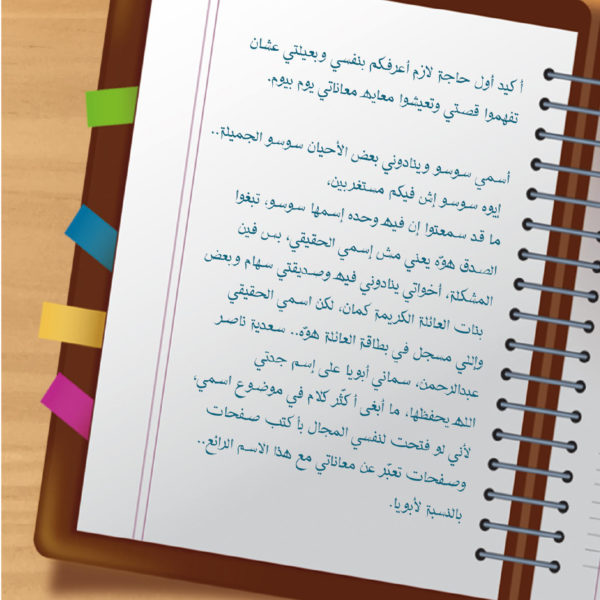 أكيد أول حاجة لازم أعرفكم بنفسي وبعيلتي عشان
تفهموا قصتي وتعيشوا معايه معاناتي يوم بيوم.
أسمي سوسو وينادوني بعض الأحيان سوسو الجميلة..
ايوه سوسو إش فيكم مستغربين،
ما قد سمعتوا إن فيه وحده إسمها سوسو، تبغوا
الصدق هوّه يعني مش إسمي الحقيقي، بس فين
المشكلة، أخواتي ينادوني فيه وصديقتي سهام وبعض
بنات العائلة الكريمة كمان، لكن اسمي الحقيقي
وإللي مسجل في بطاقة العائلة هوّه.. سعدية ناصر
عبدالرحمن، سماني أبويا على إسم جدتي
الله يحفظها، ما أبغى أكثّر كلام في موضوع اسمي،
لأني لو فتحت لنفسي المجال بأكتب صفحات
وصفحات تعبّر عن معاناتي مع هذا الاسم الرائع..
بالنسبة لأبويا.